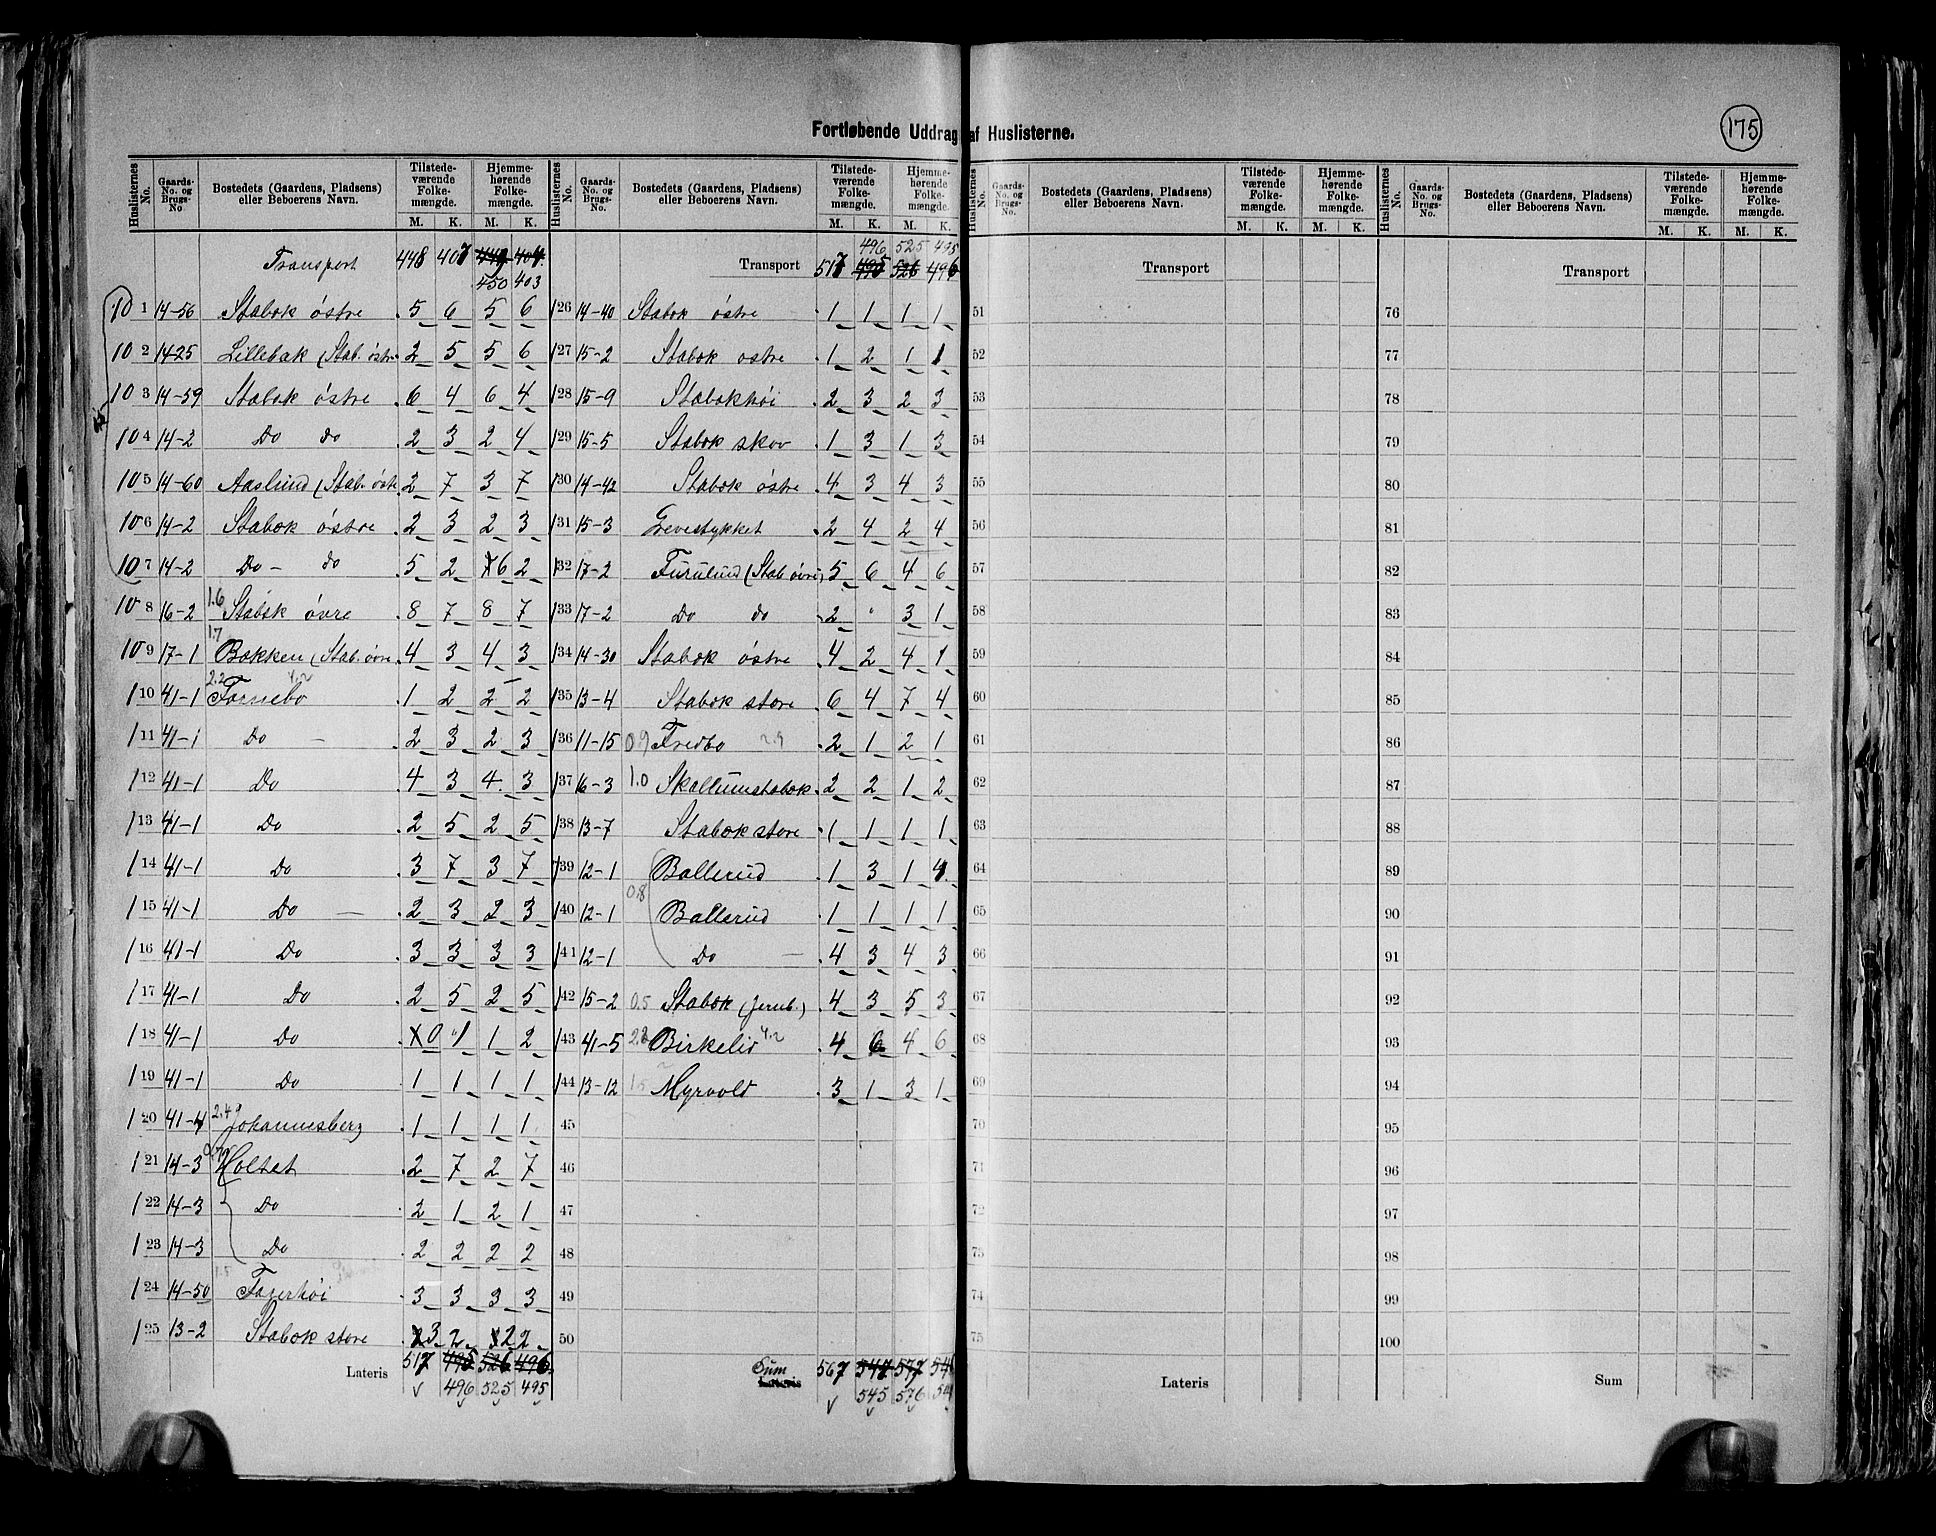 175
Fortløbende Uddrag af Huslisterne.
Huslisternes No. | Gaards-No. og Brugs-No. | Bostedets (Gaardens, Pladsens) eller Beboerens Navn. | Tilstedeværende Folkemængde. M. K. | Hjemmehørende Folkemængde. M. K.
Transport 448 407 449 404
450 403
101 14-56 Stabæk østre 5 6 5 6
102 14-25 Lillebæk (Stab. østre 2 5 5 6
103 14-59 Stabæk østre 6 4 6 4
104 14-2 Do do 2 3 2 4
105 14-60 Aaslund (Stab. østre 2 7 3 7
106 14-2 Stabæk østre 2 3 2 3
107 14-2 Do - do 5 2 6 2
108 16-2 1.6 Stabæk øvre 8 7 8 7
109 17-1 1.7 Bakken (Stab. øvre 4 3 4 3
110 41-1 2.2 Fornebo 4.2 1 2 2 2
111 41-1 Do - 2 3 2 3
112 41-1 Do 4 3 4 3
113 41-1 Do 2 5 2 5
114 41-1 Do 3 7 3 7
115 41-1 Do - 2 3 2 3
116 41-1 Do 3 3 3 3
117 41-1 Do 2 5 2 5
118 41-1 Do 0 1 1 2
119 41-1 Do 1 1 1 1
120 41-4 2.4 Johannesberg 1 1 1 1
121 14-3 Holtet 2 7 2 7
122 14-3 Do 2 1 2 1
123 14-3 Do 2 2 2 2
124 14-50 1.5 Fagerhøi 3 3 3 3
125 13-2 Stabæk store 3 2 2 2
Lateris 517 495 526 496
496 525 495
496 525 495
Transport 517 495 526 496
126 14-40 Stabæk østre 1 1 1 1
127 15-2 Stabæk østre 1 2 1 1
128 15-9 Stabækhøi 2 3 2 3
129 15-5 Stabæk skov 1 3 1 3
130 14-42 Stabæk østre 4 3 4 3
131 15-3 Grevestykket 2 4 2 4
132 17-2 Furulund (Stab øvre) 5 6 4 6
133 17-2 Do do 2 " 3 1
134 14-30 Stabæk østre 4 2 4 1
135 13-4 Stabæk store 6 4 7 4
136 11-15 0.9 Fredbo 2.9 2 1 2 1
137 16-3 1.0 Skallumstabæk 2 2 1 2
138 13-7 Stabæk store 1 1 1 1
139 12-1 Ballerud 1 3 1 4
0.8
140 12-1 Ballerud 1 1 1 1
141 12-1 Do - 4 3 4 3
142 15-2 0.5 Stabæk (Jernb.) 4 3 5 3
143 41-5 Birkelid 4.2 4 6 4 6
144 13-12 1.5 Myrvold 3 1 3 1
45
46
47
48
49
50
Sum Lateris 567 547 577
545 576
Huslisternes No. | Gaards-No. og Brugs-No. | Bostedets (Gaardens, Pladsens) eller Beboerens Navn. | Tilstedeværende Folkemængde. M. K. | Hjemmehørende Folkemængde. M. K.
Transport
51
52
53
54
55
56
57
58
59
60
61
62
63
64
65
66
67
68
69
70
71
72
73
74
75
Lateris
Transport
76
77
78
79
80
81
82
83
84
85
86
87
88
89
90
91
92
93
94
95
96
97
98
99
100
Sum